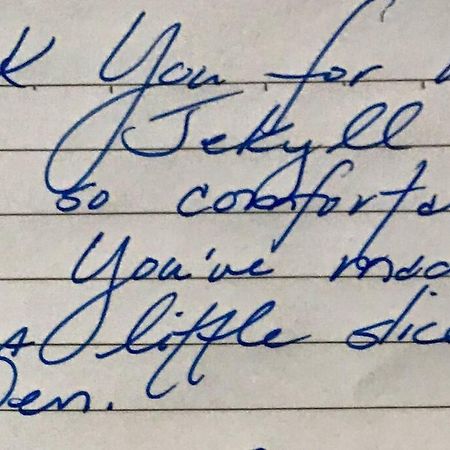 K You for
Jekyll
so comforta
You've mad
A little slice
en.